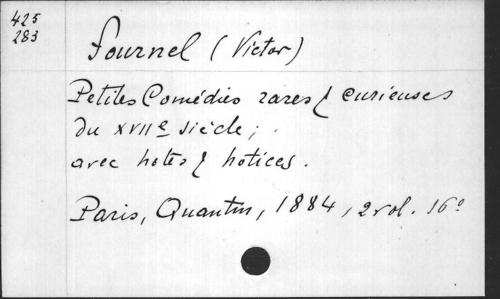 425
283
Fournel (Victor)
Petites Comédies rares & curieuses
du XVIIe siècle ;
avec notes & notices.
Paris, Quantin, 1884, 2 vol. 16°